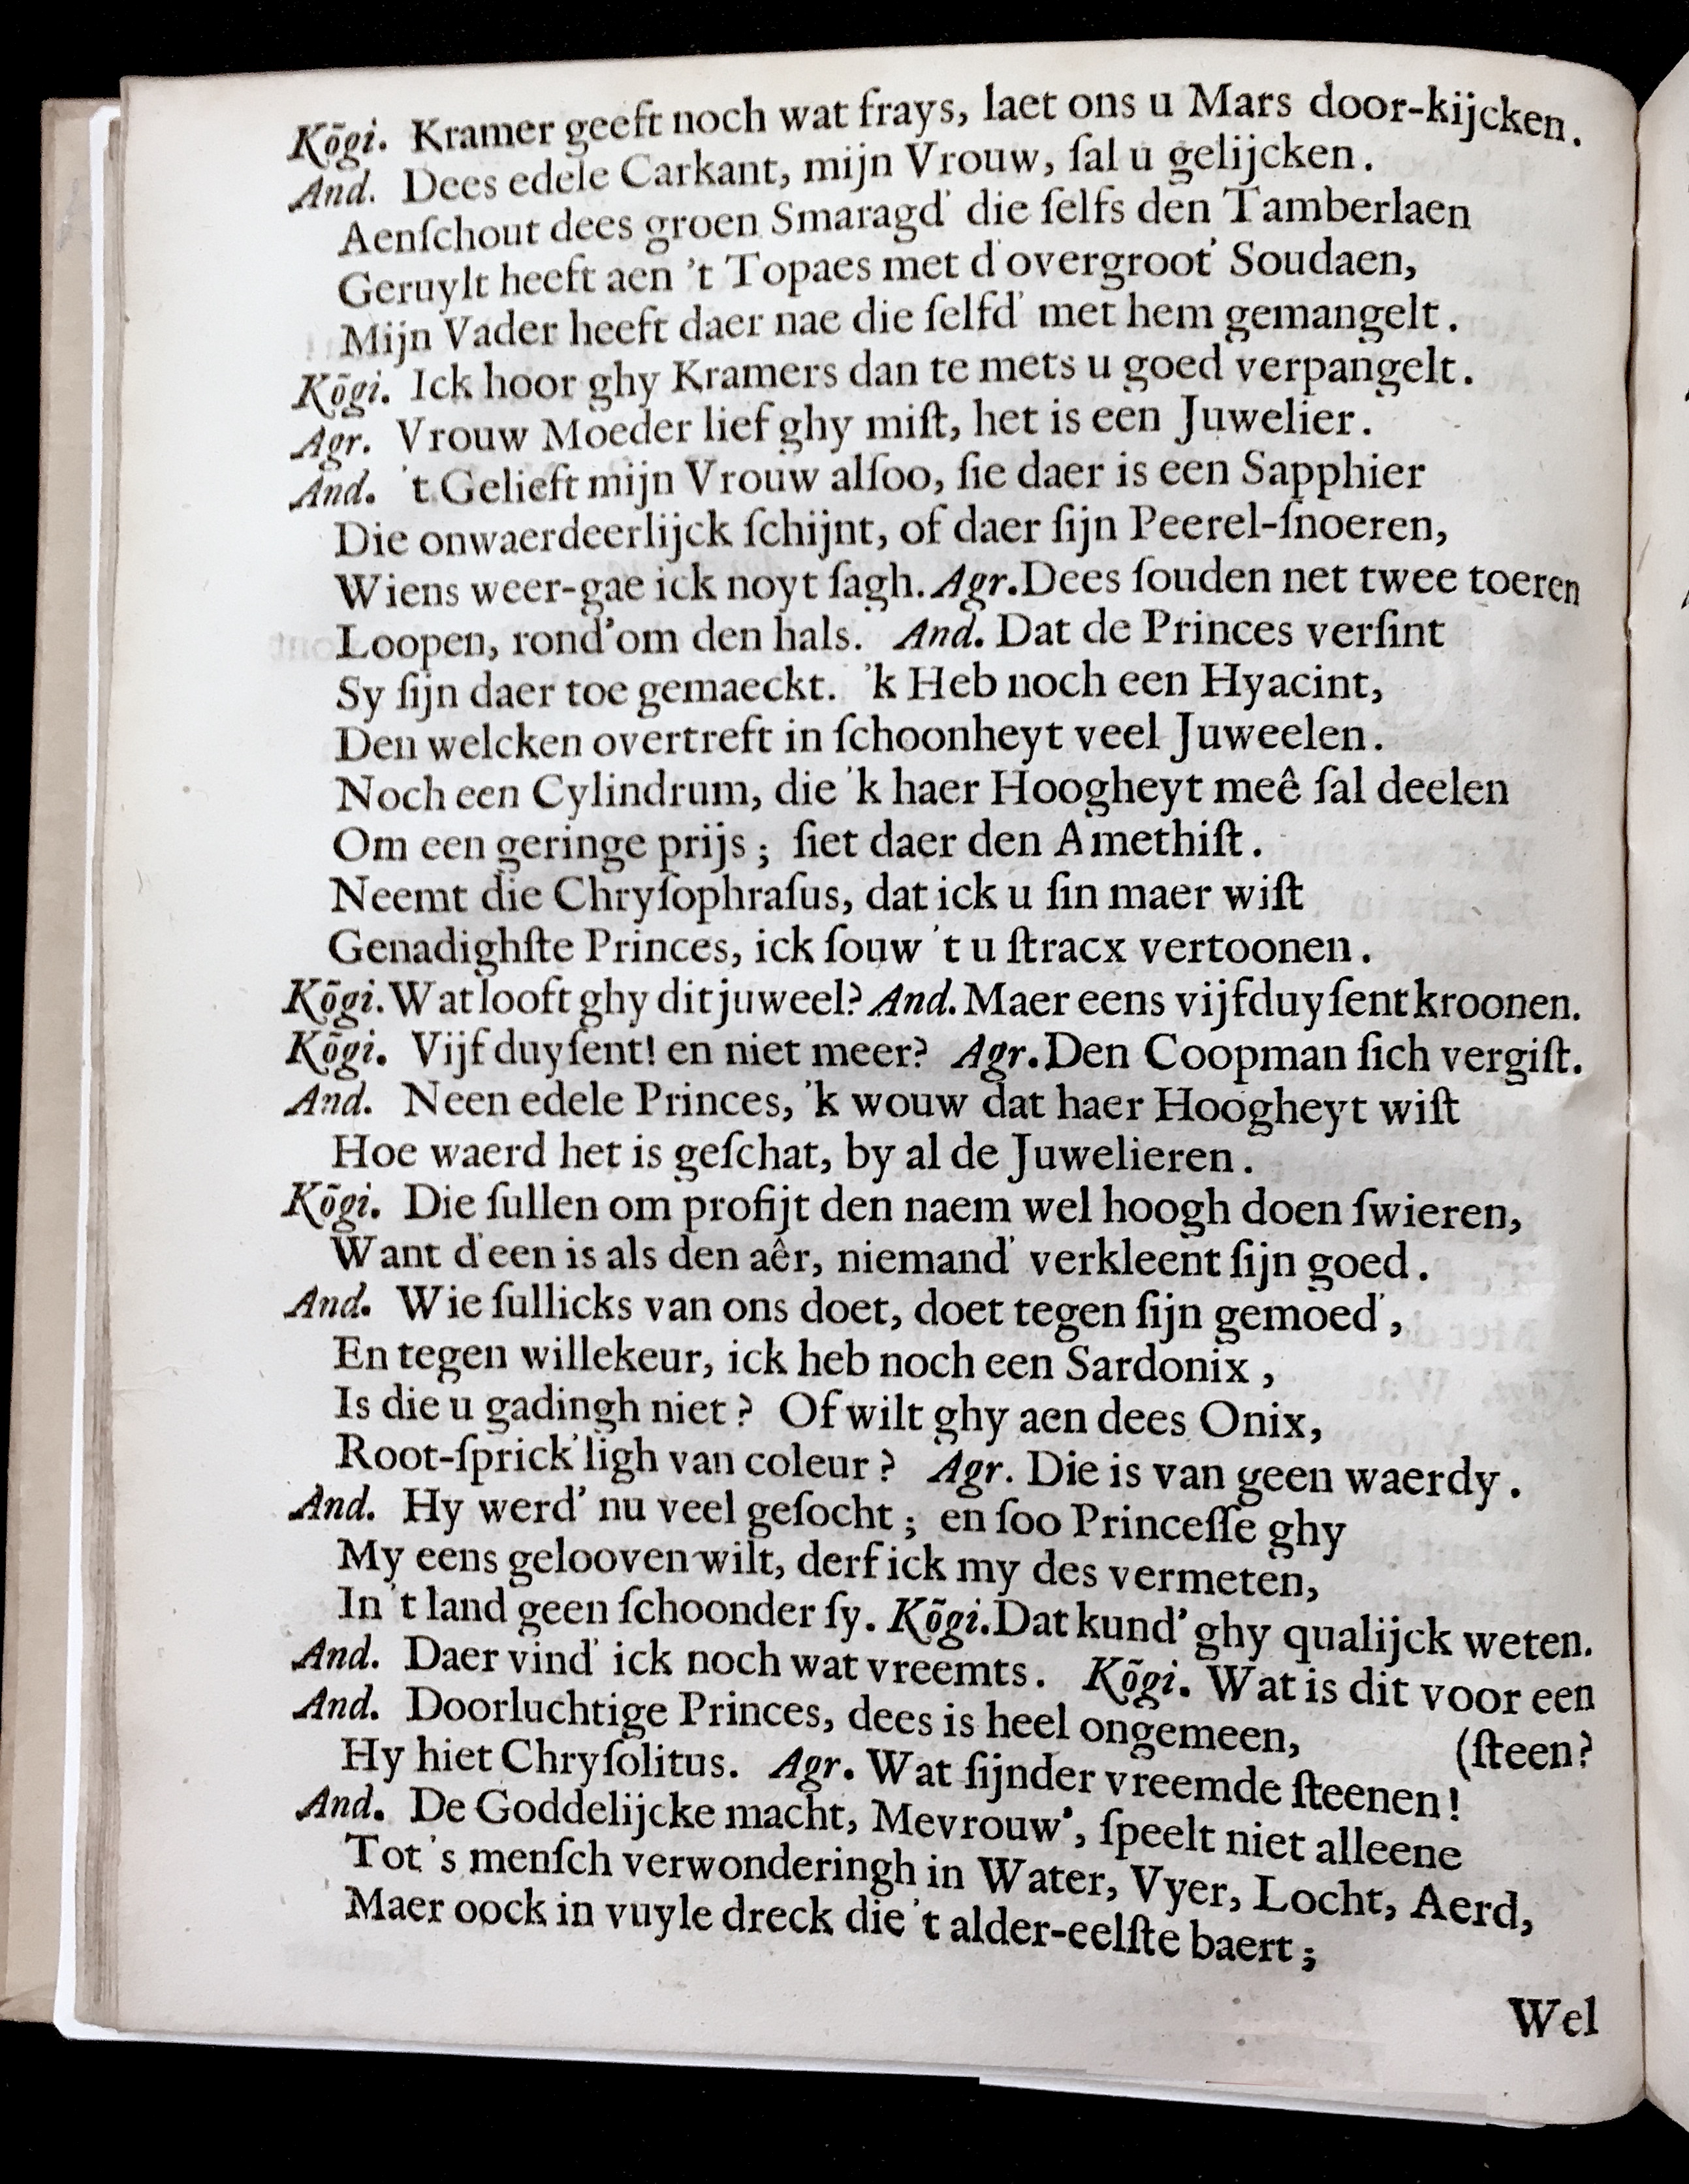 Kõgi. Kramer geeft noch wat frays, laet ons u Mars door-kijcken.
And. Dees edele Carkant, mijn Vrouw, ſal u gelijcken.
Aenſchout dees groen Smaragd' die ſelfs den Tamberlaen
Geruylt heeft aen 't Topaes met d'overgroot' Soudaen,
Mijn Vader heeft daer nae die ſelfd' met hem gemangelt.
Kõgi. Ick hoor ghy Kramers dan te mets u goed verpangelt.
Agr. Vrouw Moeder lief ghy miſt, het is een Juwelier.
And. 't Gelieft mijn Vrouw alſoo, ſie daer is een Sapphier
Die onwaerdeerlijck ſchijnt, of daer ſijn Peerel-ſnoeren,
Wiens weer-gae ick noyt ſagh. Agr. Dees ſouden net twee toeren
Loopen, rond'om den hals. And. Dat de Princes verſint
Sy ſijn daer toe gemaeckt. 'k Heb noch een Hyacint,
Den welcken overtreft in ſchoonheyt veel Juweelen.
Noch een Cylindrum, die 'k haer Hoogheyt meê ſal deelen
Om een geringe prijs; ſiet daer den Amethiſt.
Neemt die Chryſophraſus, dat ick u ſin maer wiſt
Genadighſte Princes, ick ſouw 't u ſtracx vertoonen.
Kõgi. Wat looft ghy dit juweel? And. Maer eens vijfduyſent kroonen.
Kõgi. Vijf duyſent! en niet meer? Agr. Den Coopman ſich vergiſt.
And. Neen edele Princes, 'k wouw dat haer Hoogheyt wiſt
Hoe waerd het is geſchat, by al de Juwelieren.
Kõgi. Die ſullen om profijt den naem wel hoogh doen ſwieren,
Want d'een is als den aêr, niemand' verkleent ſijn goed.
And. Wie ſullicks van ons doet, doet tegen ſijn gemoed',
En tegen willekeur, ick heb noch een Sardonix,
Is die u gadingh niet? Of wilt ghy aen dees Onix,
Root-ſprick'ligh van coleur? Agr. Die is van geen waerdy.
And. Hy werd' nu veel geſocht; en ſoo Princeſſe ghy
My eens gelooven wilt, derf ick my des vermeten,
In 't land geen ſchoonder ſy. Kõgi. Dat kund' ghy qualijck weten.
And. Daer vind' ick noch wat vreemts. Kõgi. Wat is dit voor een
And. Doorluchtige Princes, dees is heel ongemeen, (ſteen?
Hy hiet Chryſolitus. Agr. Wat ſijnder vreemde ſteenen!
And. De Goddelijcke macht, Mevrouw', ſpeelt niet alleene
Tot 's menſch verwonderingh in Water, Vyer, Locht, Aerd,
Maer oock in vuyle dreck die 't alder-eelſte baert;
Wel